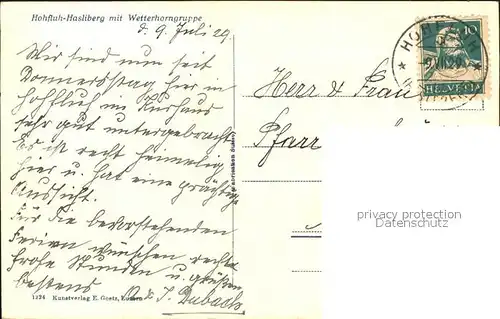 Hohfluh-Hasliberg mit Wetterhorngruppe
d. 9. Juli 29.
Wir sind nun seit
Donnerstag hier in
Hohfluh im Kurhaus
sehr gut untergebracht.
Es ist recht heimelig
hier u. hat eine prächtige
Aussicht.
Für Die bevorstehenden
Ferien wünschen recht
frohe Stunden u. grüßen
bestens
& J. Dubach
1224 Kunstverlag E. Goetz, Luzern
HOHFLUH
9.VII.29
10
HELVETIA
Herr & Frau
Pfarr
privacy protection
VINTAGE POSTCARD